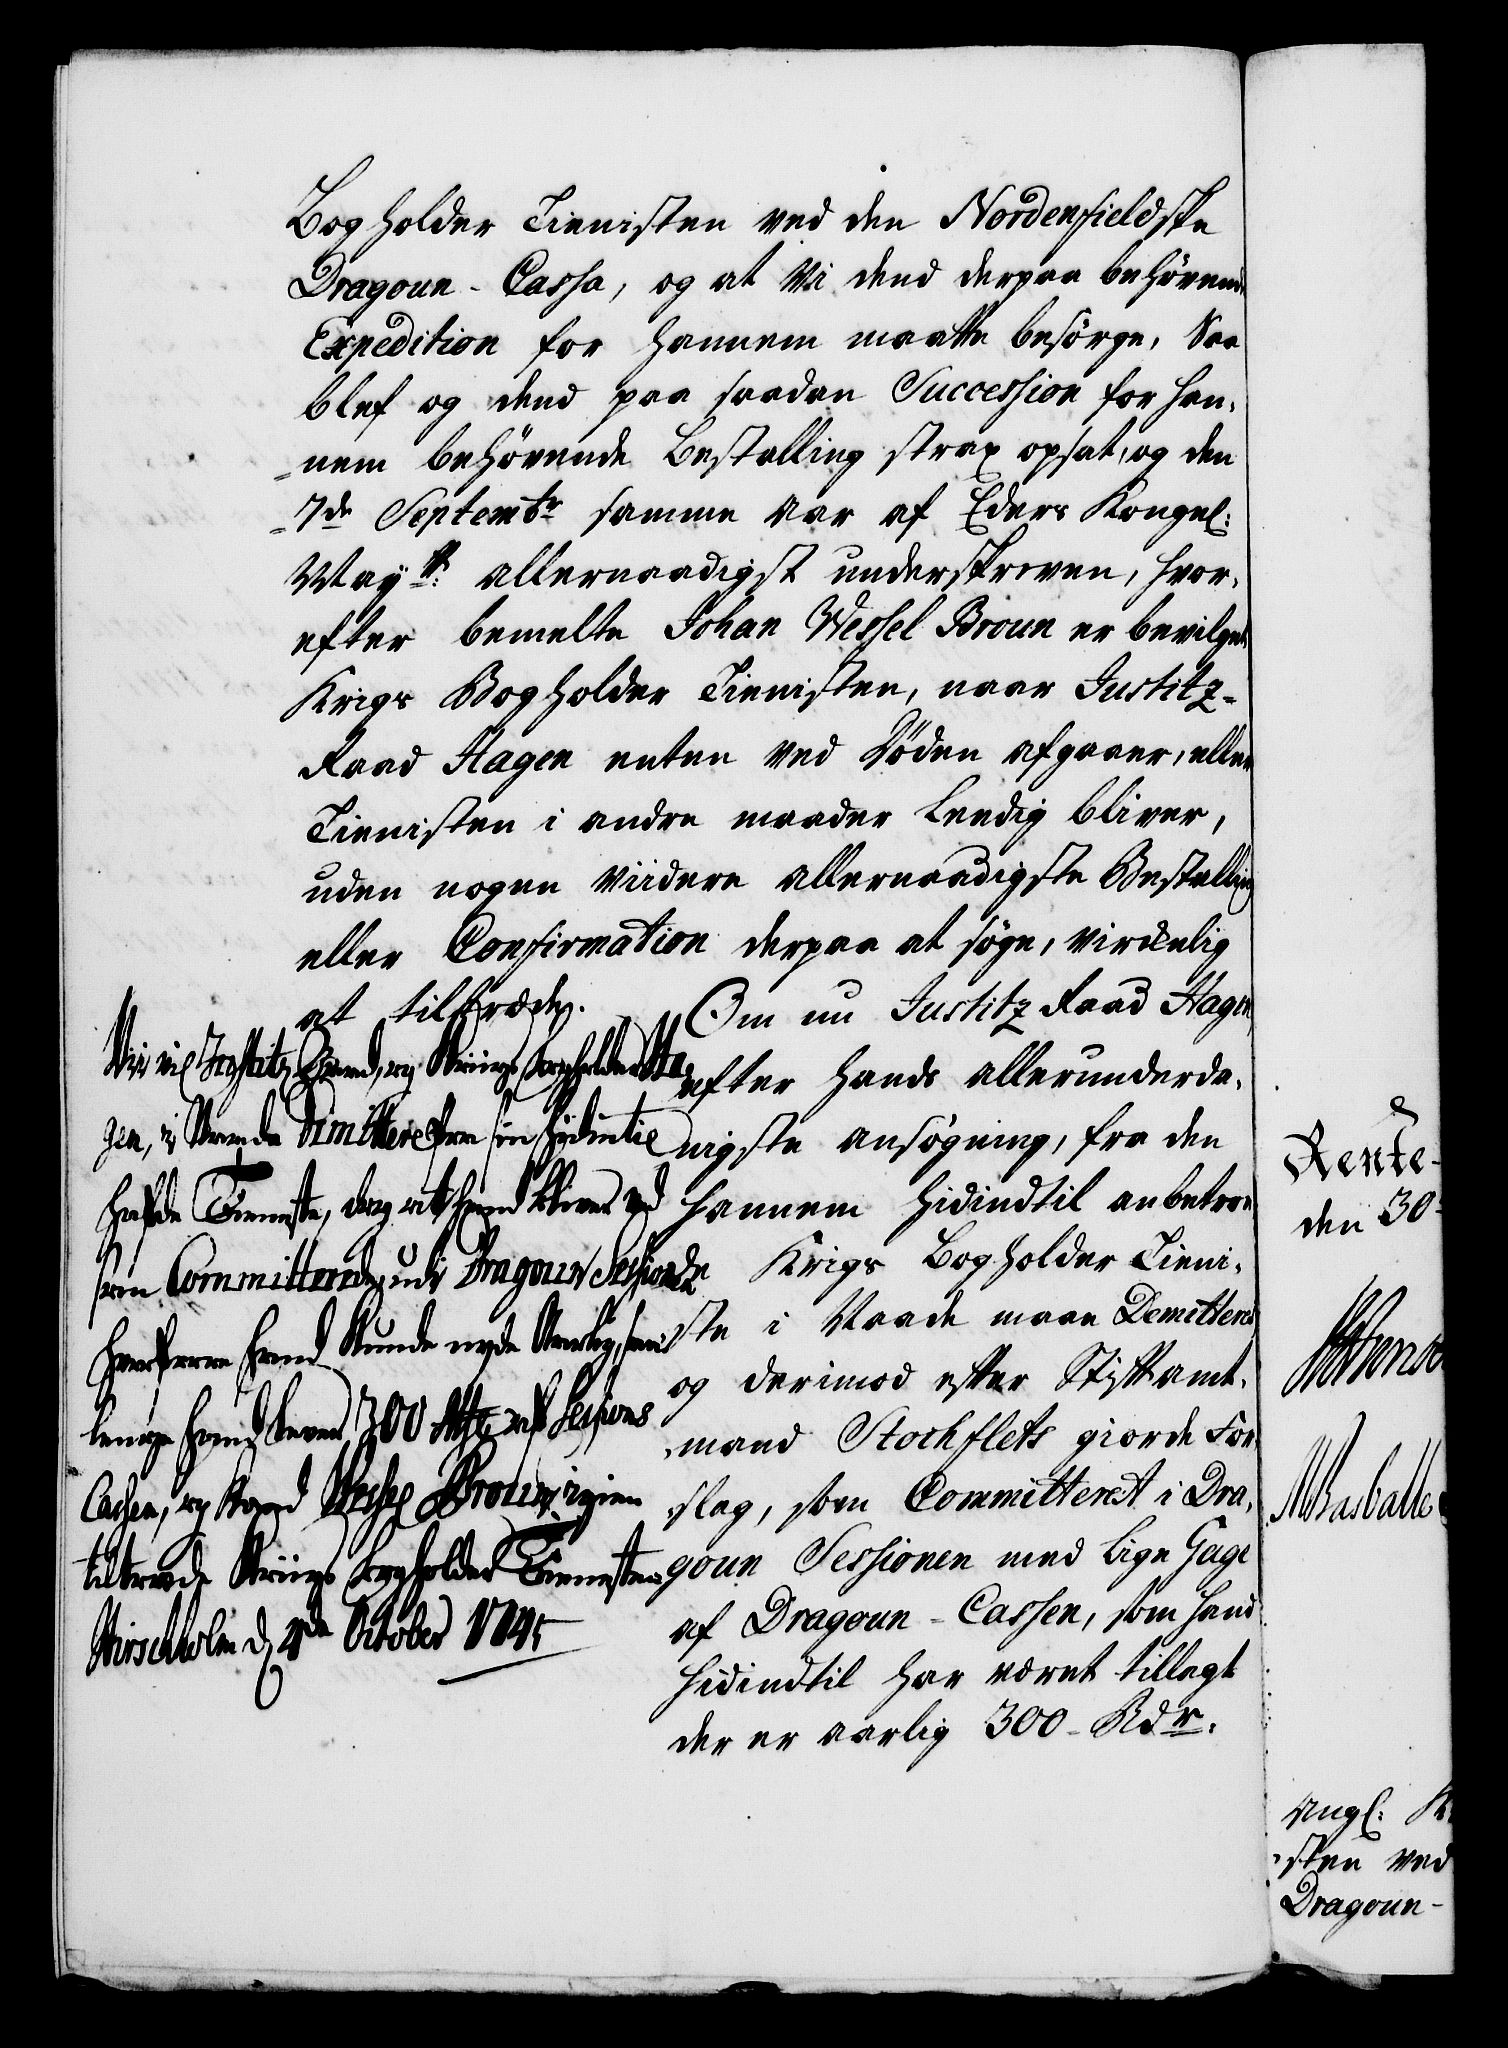 Bogholder Tienisten ved den Nordenfieldske
Dragoun-Cassa, og at Vi dend derpaa behörende
Expedition for hannem maatte besörge, Saa
blef og dend paa saadan Succession for han-
nem behövende Bestalling strax opsat, og den
7de Septembr samme Aar af Eders Kongel:
May:tt allernaadigst underskreven, hvor-
efter bemelte Johan Wessel Broun er bevilget
Krigs Bogholder Tienisten, naar Justitz-
Raad Hagen enten ved Döden afgaaer, eller
Tienisten i andre maader Leedig bliver,
uden nogen viidere allernaadigste Bestalling
eller Confirmation derpaa at söge, virckelig
at tiltræde.
Om nu Justitz Raad Hagen,
efter hands allerunderda-
nigste ansögning, fra den
hannem hidindtil anbetroe-
de Krigs Bogholder Tieni-
ste i Naade maae Demitteres
og derimod efter Stiftamt-
mand Stockflets giorde For-
slag, som Committeret i Dra-
goun Sessionen med lige Gage
af Dragoun-Cassen, som hand
hidindtil har været tillagt
der er aarlig 300 Rdr.
Vii vil Justitz Raad, og Kriigs bogholder Ha-
gen, i Naade Dimittere fra sin hidintil
hafde Tieneste, dog at hand bliver ved
som Committerede udi Dragoun Sessionen
hvorfore hand Kunde nyde Aarlig, saa
lenge hand lever 300 Rdr af Sessions
Cassen, og Kand Wessel Broun igien
tiltræde Kriigs bogholder Tienesten
Hirschholm d. 4de October 1745
Rente-
den 30
Angl: K
sten ved
Dragoun-